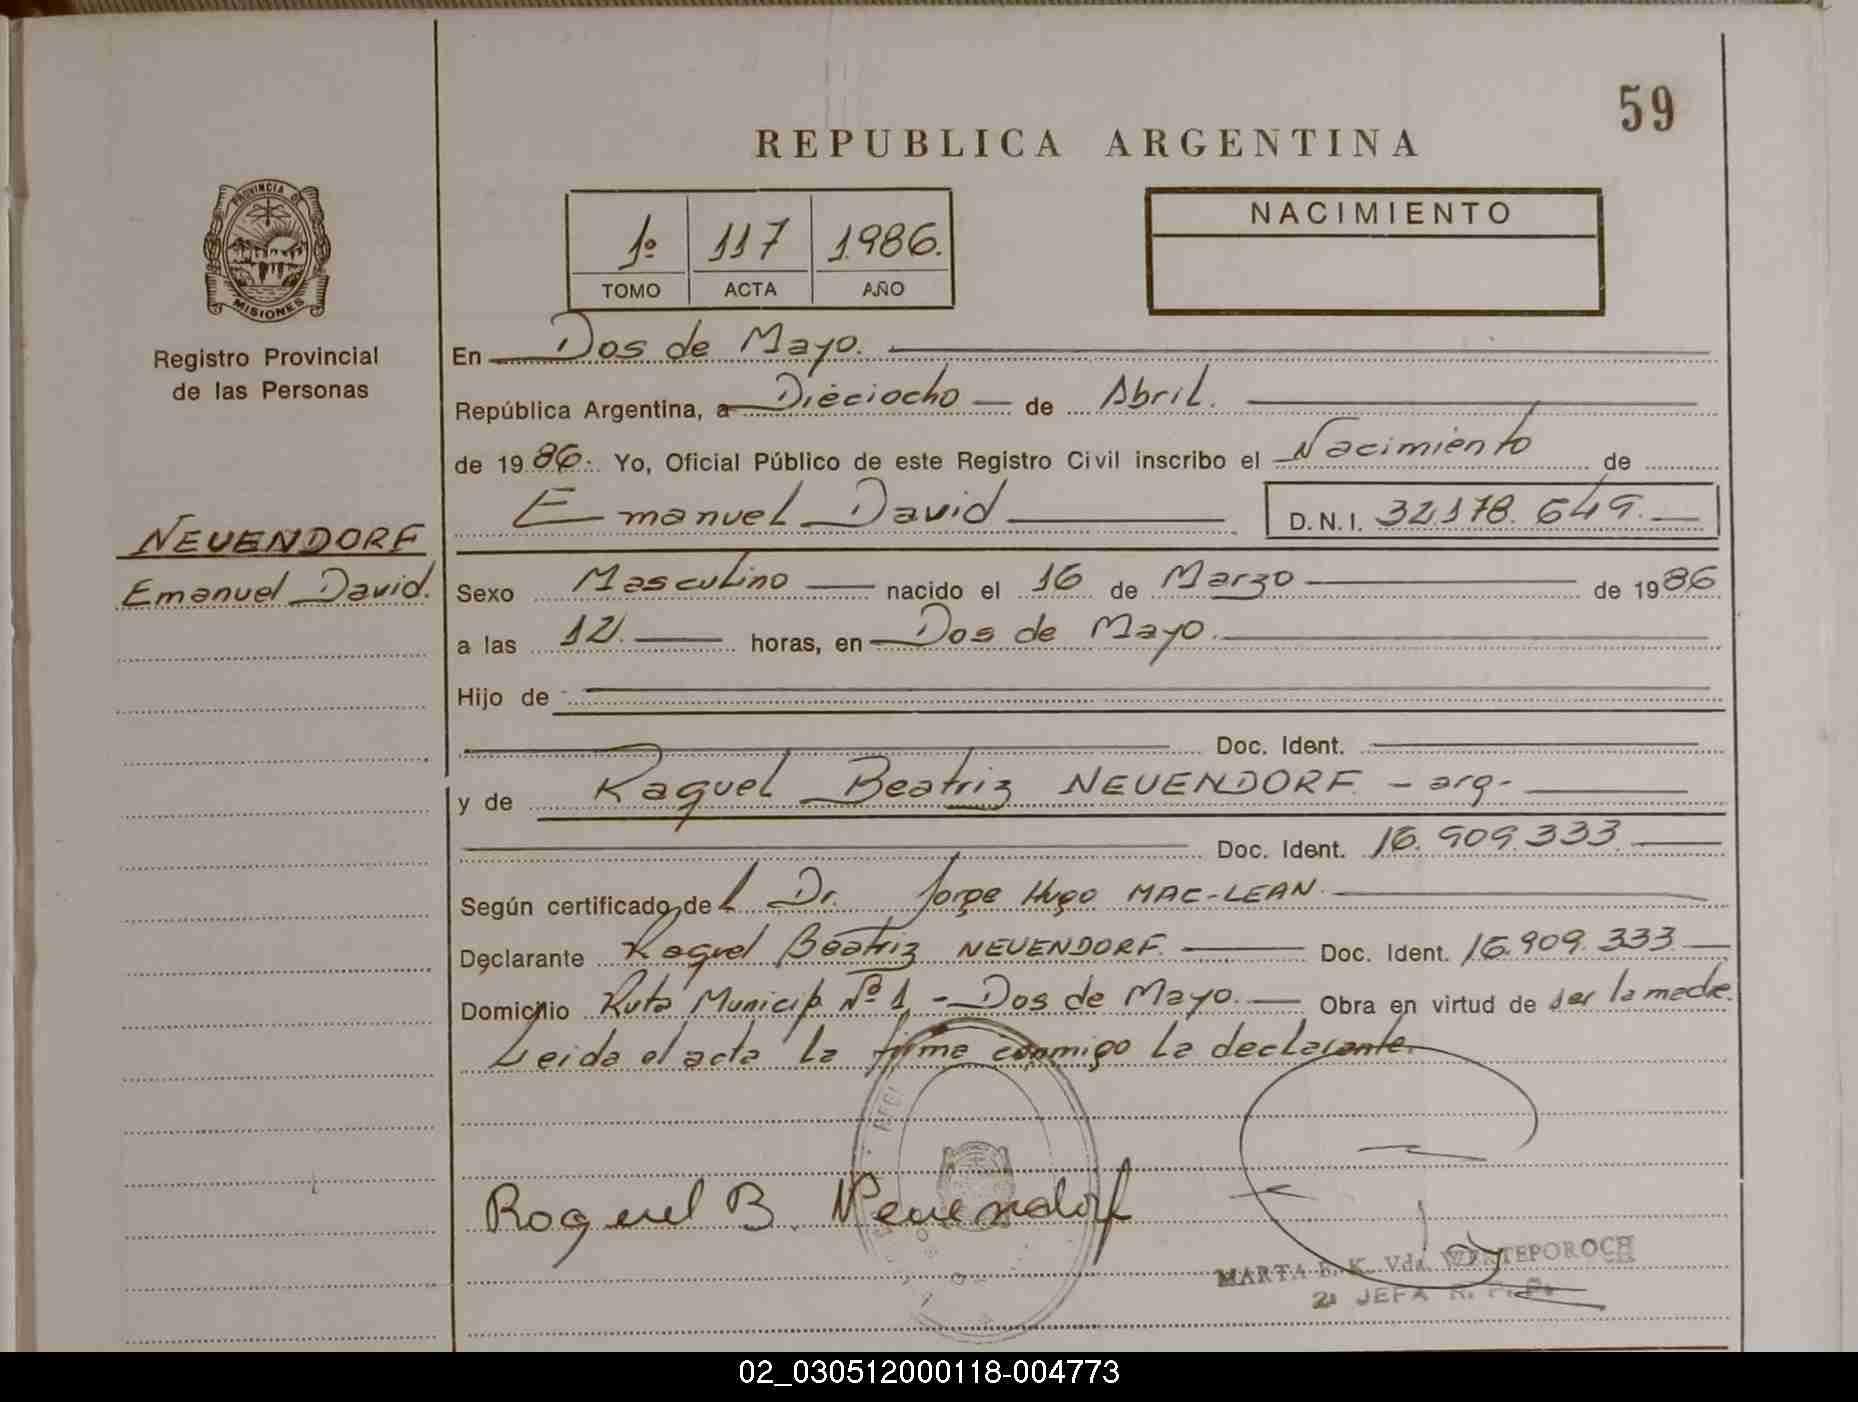 59
REPUBLICA ARGENTINA
PROVINCIA DE
MISIONES
Registro Provincial
de las Personas
1º 117 1986.
TOMO ACTA AÑO
NACIMIENTO
En Dos de Mayo.
República Argentina, a Dieciocho de Abril.
de 1986. Yo, Oficial Público de este Registro Civil inscribo el Nacimiento de
Emanuel David D.N.I. 32.178.649.
NEUENDORF
Emanuel David.
Sexo Masculino nacido el 16 de Marzo de 1986
a las 12. horas, en Dos de Mayo.
Hijo de
Doc. Ident.
y de Raquel Beatriz NEUENDORF - arg-
Doc. Ident. 16.909.333.
Según certificado del Dr. Jorge Hugo MAC-LEAN.
Declarante Raquel Beatriz NEUENDORF. Doc. Ident. 16.909.333
Domicilio Ruta Municip. Nº 1 - Dos de Mayo. Obra en virtud de ser la madre.
Leida el acta la firma conmigo la declarante.
Roquel B. Neuendorf
MARTA E. K. Vda.
JEFA R. P. P.
02_030512000118-004773